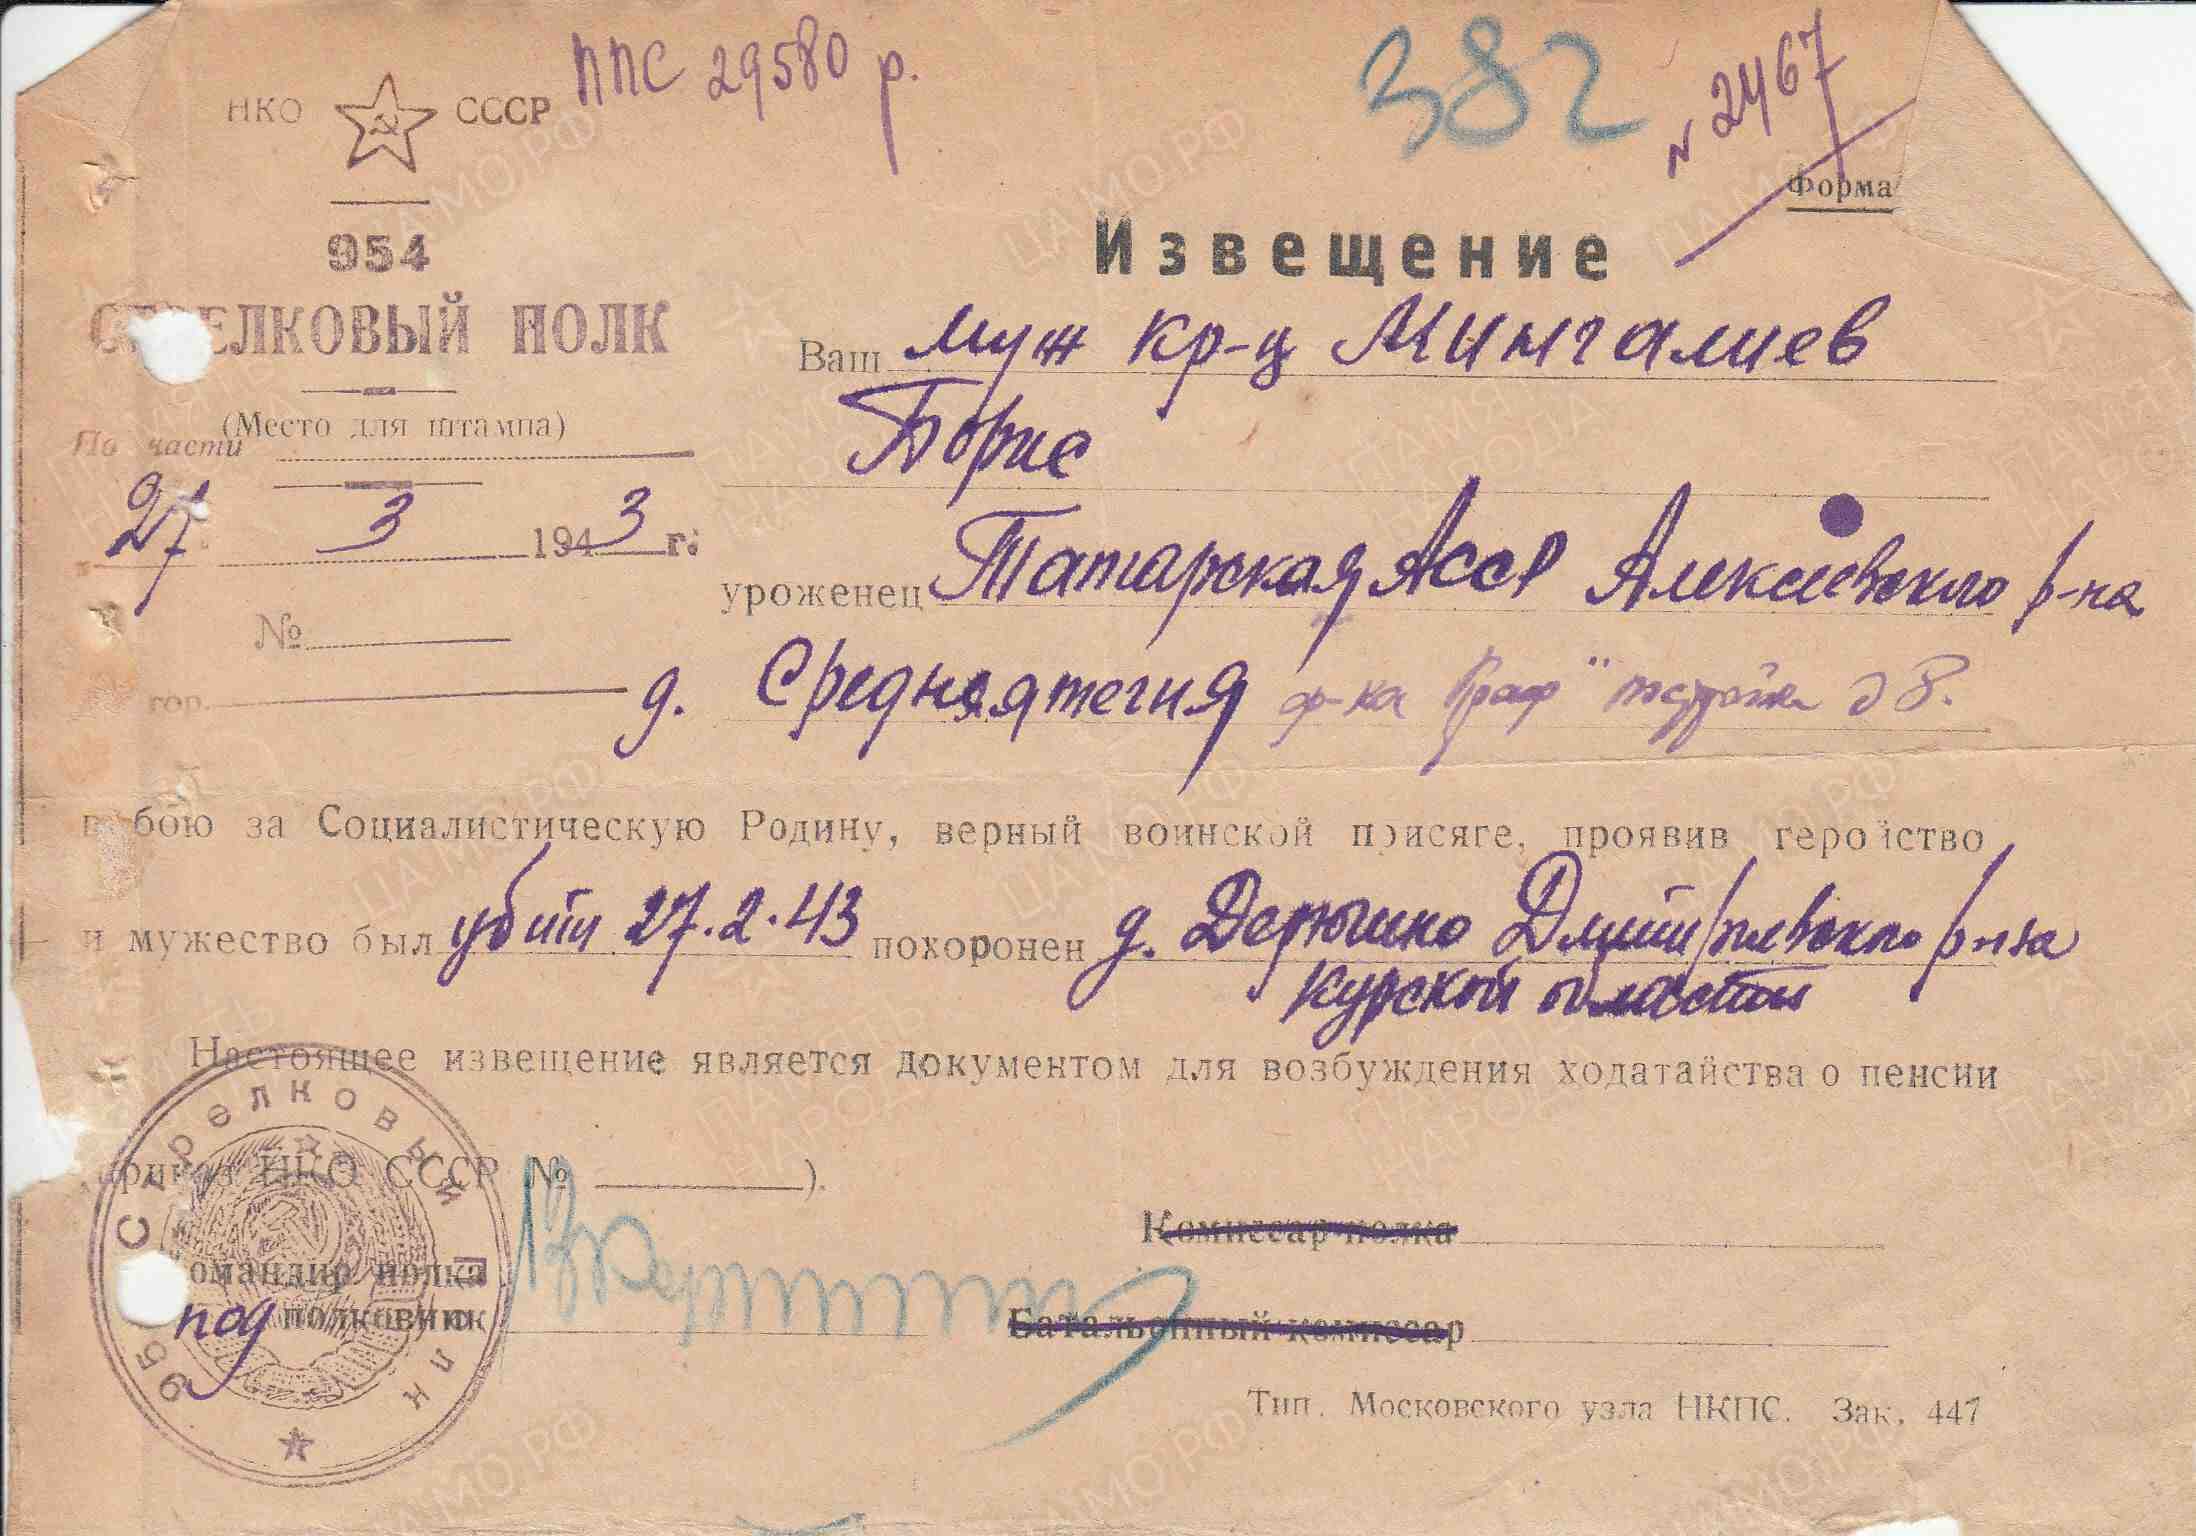 ППС 29580 р.
382
N 2467
НКО СССР
Форма
954
СТРЕЛКОВЫЙ ПОЛК
(Место для штампа)
По части
27 3 1943 г.
№
гор.
Извещение
Ваш муж кр-ц Мингалиев
Борис
уроженец Татарская АССР Алексеевского р-на
д. Средняятегия ф-ка дв.
в бою за Социалистическую Родину, верный воинской присяге, проявив геройство
и мужество был убит 27.2.43 похоронен д. Дерюгино Дмитриевского р-на
Курской области
Настоящее извещение является документом для возбуждения ходатайства о пенсии
(приказ НКО СССР № ).
Командир полка
Комиссар полка
подполковник
Батальонный комиссар
954 Стрелковый полк
Тип. Московского узла НКПС. Зак. 447
ЦАМО.РФ
ПАМЯТЬ НАРОДА